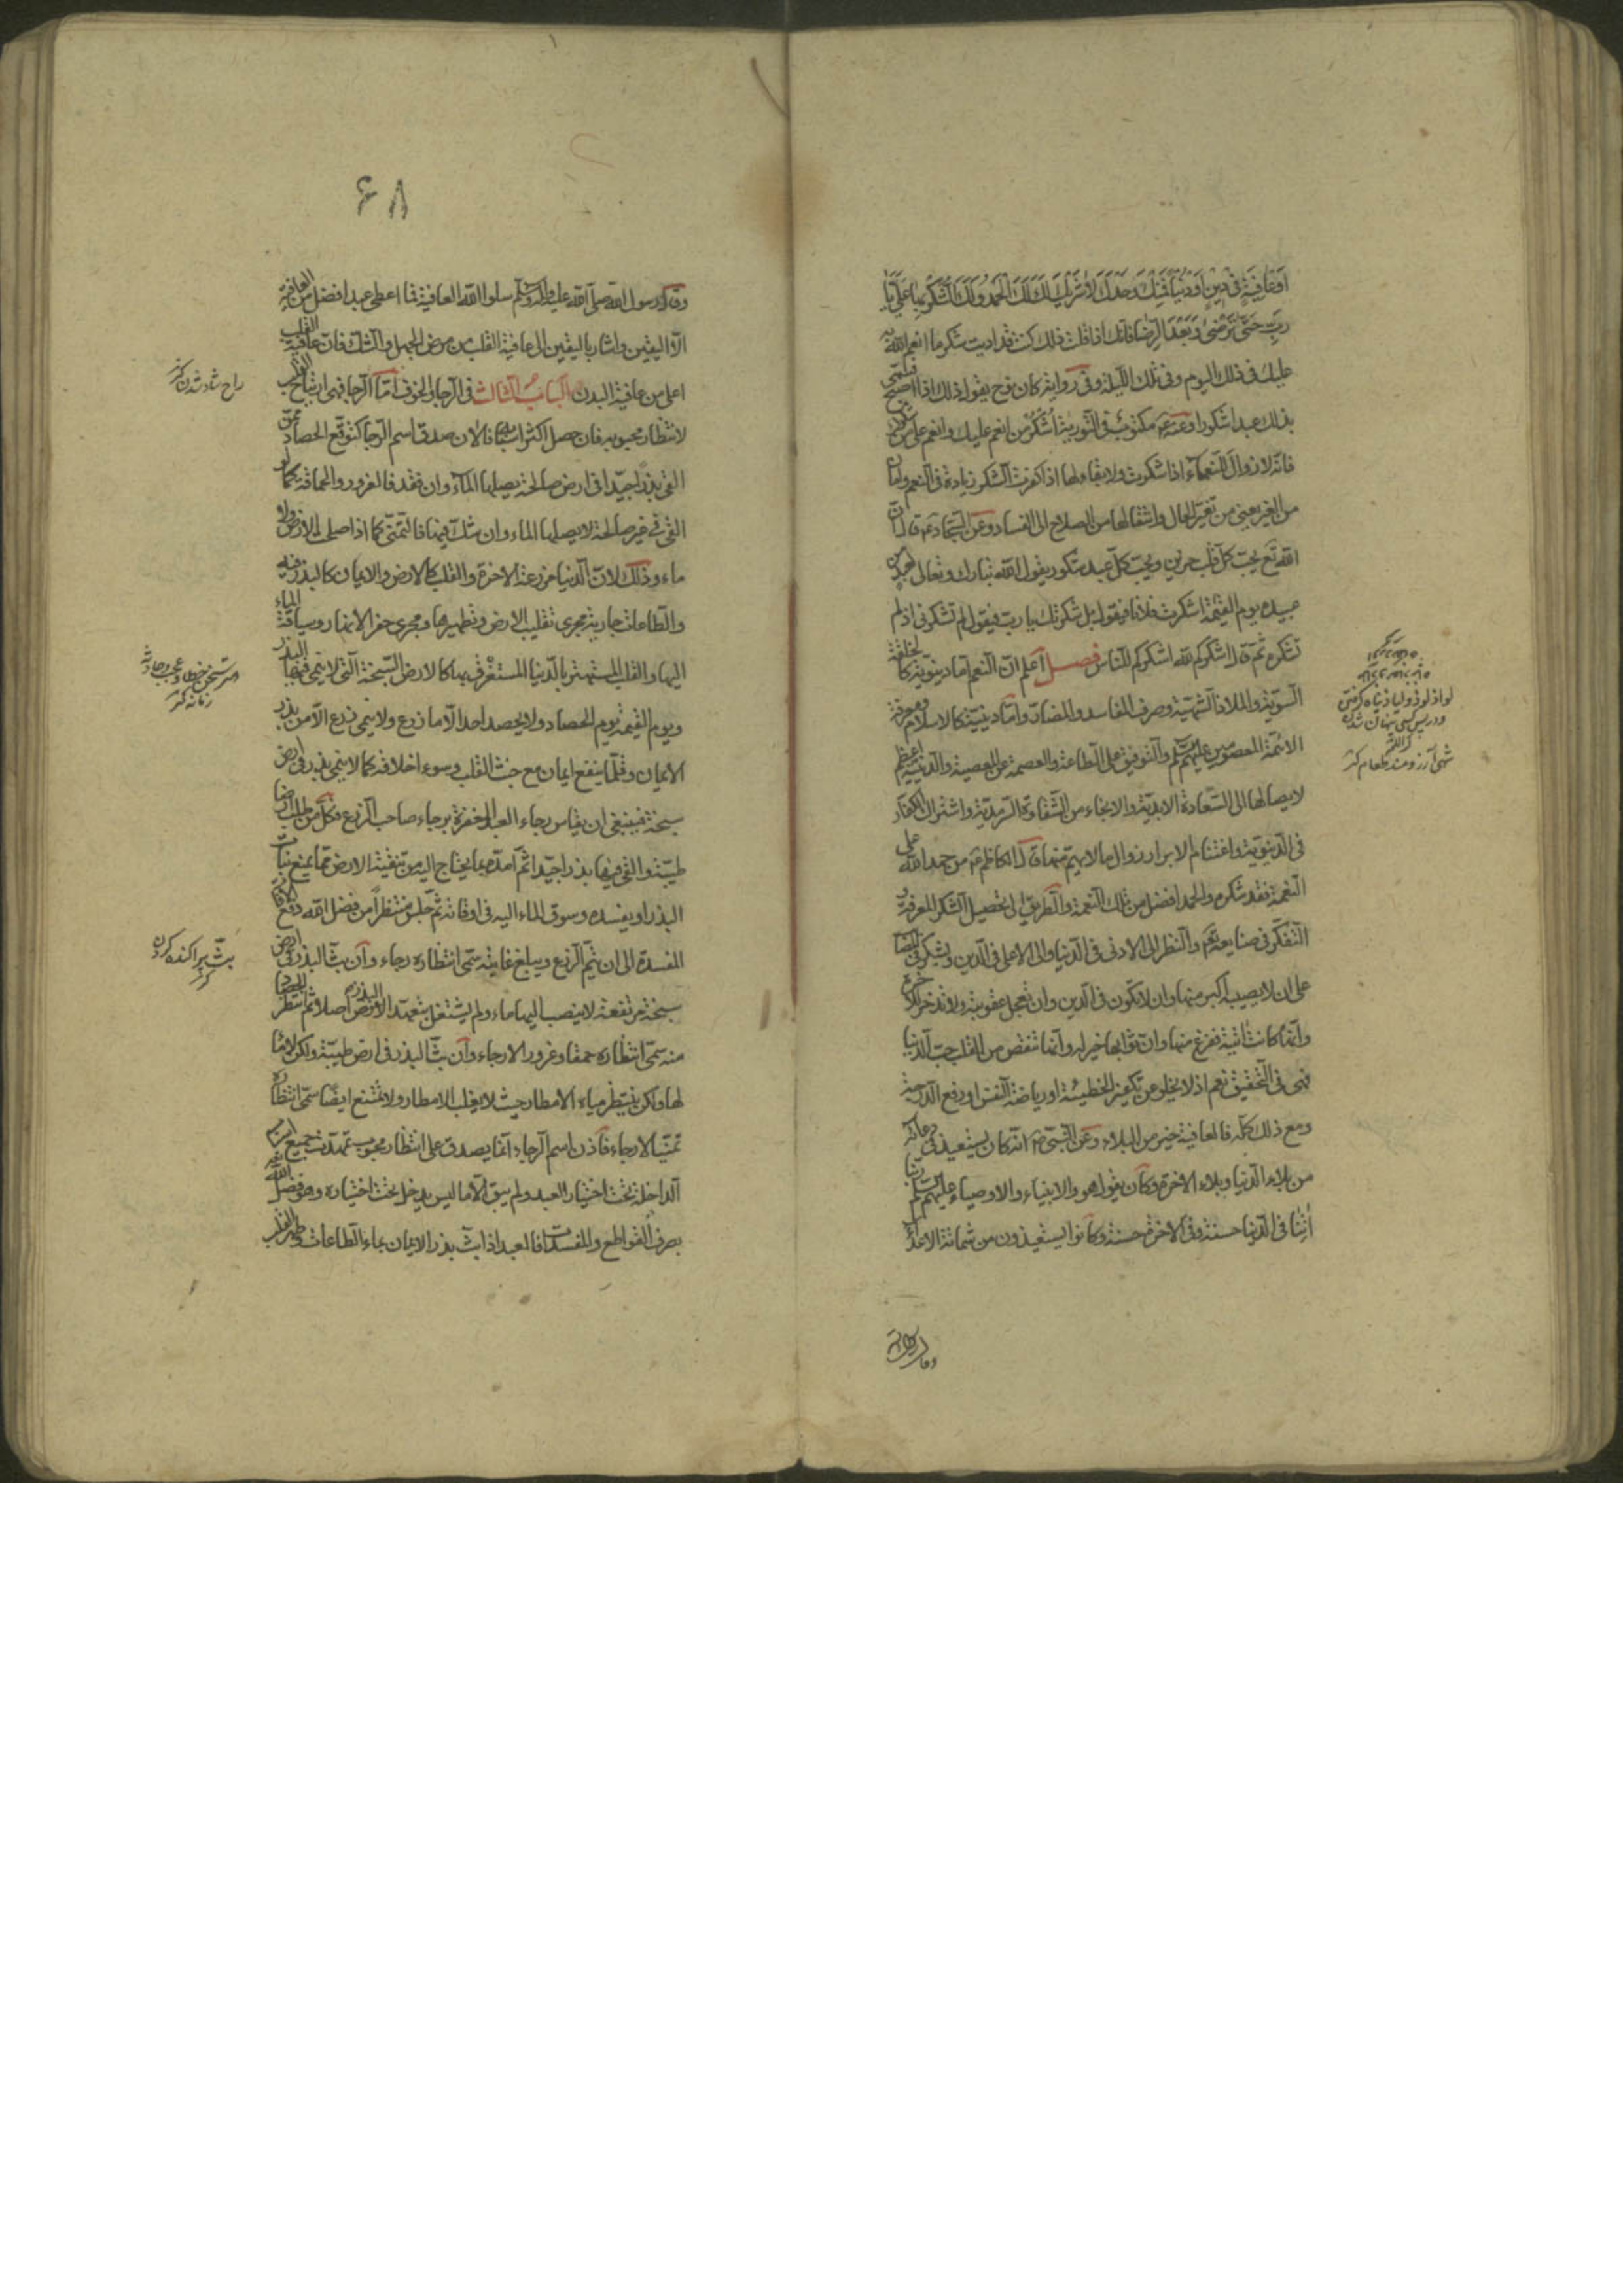 او عافية في دين او دنيا فمنك وحدك لا شريك لك لك الحمد ولك الشكر بها علي يا
رب حتى ترضى وبعد الرضا فانك اذا قلت ذلك كنت قد اديت شكر ما انعم الله به
عليك في ذلك اليوم وفي تلك الليلة وفي رواية كان نوح يقول ذلك اذا اصبح فسمي
بذلك عبدا شكورا وعنه ع مكتوب في التورية اشكر من انعم عليك وانعم على من شكرك
فانه لا زوال للنعماء اذا شكرت ولا بقاء لها اذا كفرت الشكر زيادة في النعم وامان
من الغير يعني من تغير الحال وانتقالها من الصلاح الى الفساد وعن السجاد ع قال ان
الله تع يحب كل قلب حزين ويحب كل عبد شكور يقول الله تبارك وتعالى لعبد من
عبيده يوم القيمة اشكرت فلانا فيقول بل شكرتك يا رب فيقول لم تشكرني اذ لم
تشكره ثم قال اشكركم لله اشكركم للناس فصل اعلم ان النعم اما دنيوية كالخلقة
السوية والملاذ الشهية وصرف المفاسد والمضار واما دينية كالاسلام ومعرفة
الائمة المعصومين عليهم السلم والتوفيق على الطاعة والعصمة عن المعصية والدينية اعظم
لايصالها الى السعادة الابدية والانجاء من الشقاوة السرمدية واشتراك الكفار
في الدنيوية واغتنام الابرار زوال ما لا يهم منها قال الكاظم ع من حمد الله على
النعمة فقد شكره والحمد افضل من تلك النعمة والطريق الى تحصيل الشكر المعرفة و
التفكر في صنايعه تع والنظر الى الادنى في الدنيا والى الاعلى في الدين ويشكر في المصائب
على ان لا يصيبه اكبر منها وان لا تكون في الدين وان تعجل عقوبته ولا تدخر للاخرة
وانها كانت اتية ففرغ منها وان ثوابها خير له وانها تنقص من القلب حب الدنيا
فهي في التحقيق نعم اذ لا يخلو عن تكفير الخطيئة او رياضة النفس او رفع الدرجة
ومع ذلك كله فالعافية خير من البلاء وعن النبي ص انه كان يستعيذ في دعائه
من بلاء الدنيا وبلاء الاخرة وكان يقول هو والانبياء والاوصياء عليهم السلم ربنا
اتنا في الدنيا حسنة وفي الاخرة حسنة وكانوا يستعيذون من شماتة الاعداء
لواذ لوذ ولياذ پناه گرفتن
ودر پس کسی پنهان شدن
كنز اللغة
شهی آرزومند طعام کنز
وقال رسول الله
۶۸
وقال رسول الله صلى الله عليه واله وسلم سلوا الله العافية فما اعطي عبد افضل من العافية
الا اليقين واشار باليقين الى عافية القلب من مرض الجهل والشك فان عافية القلب
اعلى من عافية البدن الباب الثالث في الرجا والخوف اما الرجا فهي ارتياح القلب
لانتظار محبوبه فان حصل اكثر اسبابه فالان صدق اسم الرجا كتوقع الحصاد ممن
القى بذرا جيدا في ارض صالحة يصلها الماء وان فقد فالغرور والحماقة كما لو
القي في غير صالحة لا يصلها الماء وان شك فيها فالتمني كما اذا اصلح الارض ولا
ماء وذلك لان الدنيا مزرعة الاخرة والقلب كالارض والايمان كالبذر فيه
والطاعات جارية مجرى تقليب الارض وتطهيرها ومجرى حفر الانهار وسياقة الماء
اليها والقلب المستهتر بالدنيا المستغرق بها كالارض السبخة التي لا ينمي فيها البذر
ويوم القيمة يوم الحصاد ولا يحصد احد الا ما زرع ولا ينمي زرع الا من بذر
الايمان وقلما ينفع ايمان مع خبث القلب وسوء اخلاقه كما لا ينمي بذر في ارض
سبخة فينبغي ان يقاس رجاء العبد المغفرة برجاء صاحب الزرع فكل من طلب ارضا
طيبة والقى فيها بذرا جيدا ثم امده بما يحتاج اليه من تنقية الارض مما يمنع نبات
البذر او يفسده وسوق الماء اليه في اوقاته ثم جلس منتظرا من فضل الله دفع الافات
المفسدة الى ان يتم الزرع ويبلغ غايته سمي انتظاره رجاء وان بث البذر في ارض
سبخة مرتفعة لا ينصب اليها ماء ولم يشتغل بتعهد الارض البذر اصلا ثم انتظر الحصاد
منه سمي انتظاره حمقا وغرورا لا رجاء وان بث البذر في ارض طيبة ولكن لا ماء
لها ولكن ينتظر مياه الامطار حيث لا يغلب الامطار ولا يمتنع ايضا سمي انتظاره
تمنيا لا رجاء فاذن اسم الرجاء انما يصدق على انتظار محبوب تمهدت جميع اسبابه
الداخلة تحت اختيار العبد ولم يبق الا ما ليس يدخل تحت اختياره وهو فضل الله
بصرف القواطع والمفسدات فالعبد اذا بث بذر الايمان بماء الطاعات وطهر القلب
راح شاد شدن كنز
بث پراکنده کردن
كنز